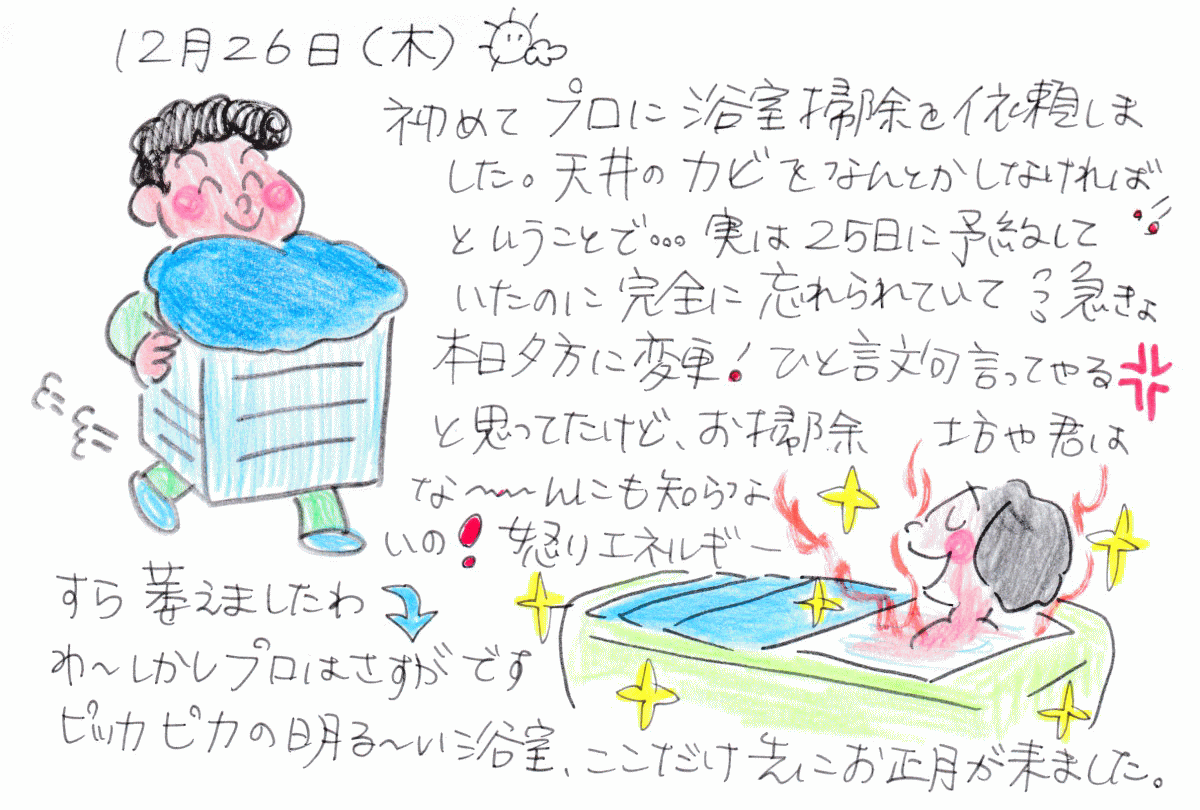 12月26日(木)
初めて プロに 浴室掃除を依頼しま
した。天井の カビを なんとかしなければ
ということで... 実は 25日に 予約して
いたのに 完全に 忘れられていて ?? 急きょ
本日夕方に変更! ひと言文句言ってやる
と思ってたけど、お掃除 坊や君は
な〜〜んにも知らな
いの! 怒りエネルギー
すら 萎えましたわ
わ〜しかしプロはさすがです
ピッカピカの明る〜い浴室、ここだけ先にお正月が来ました。